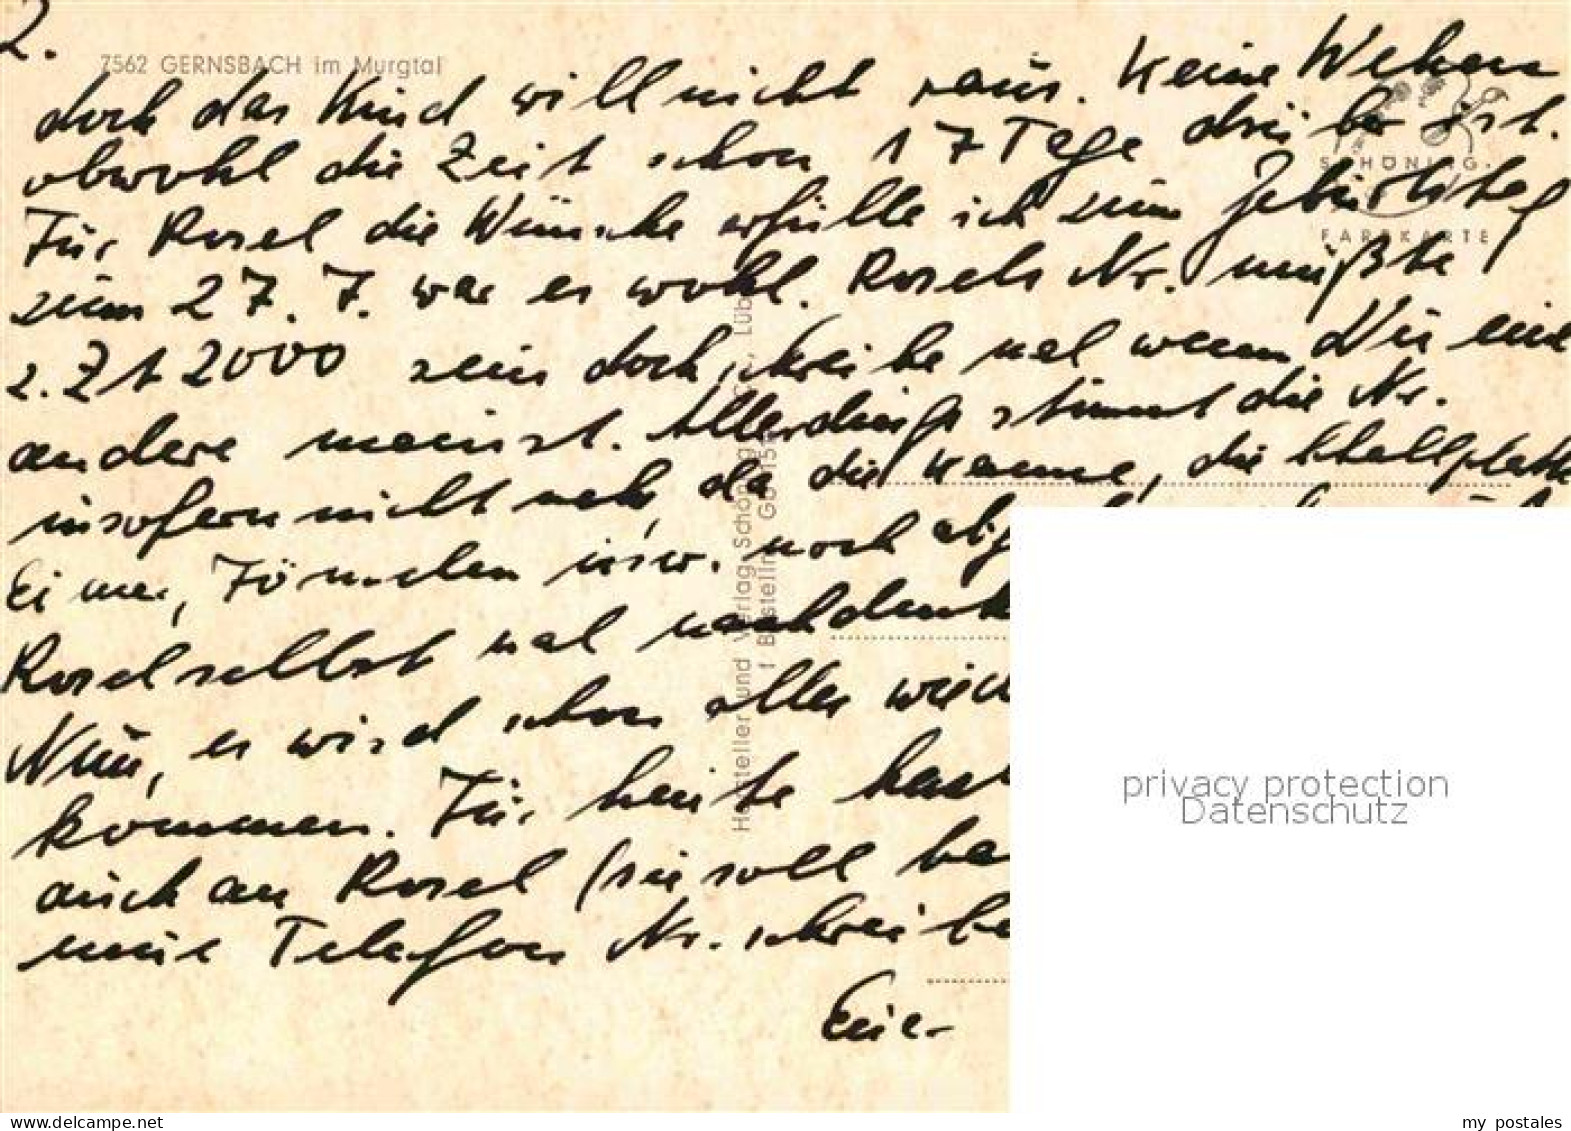 2.
7562 GERNSBACH im Murgtal
doch das Kind will nicht raus. Keine Wehen
obwohl die Zeit schon 17 Tage drüber ist.
SCHÖNING-
Für Rosel die Wünsche erfülle ich zum Geburtstag
FARBKARTE
zum 27. 7. war es wohl. Rosels Nr. müßte
z. Zt 2000 sein doch schreibe mal wenn Du eine
andere meinst. Allerdings stimmt die Nr.
insofern nicht mehr, da die Kanne, die Schallplatte
Eimer, Förmchen usw. noch
Rosel selbst mal nachdenk
Nun, es wird schon alles wied
kommen. Für heute
auch an Rosel (sie soll
mir Telefon Nr. schreibe
Euer
Hersteller und Verlag Schöning Lüb
1 Bestelln
privacy protection
Datenschutz
www.delcampe.net
my_postales